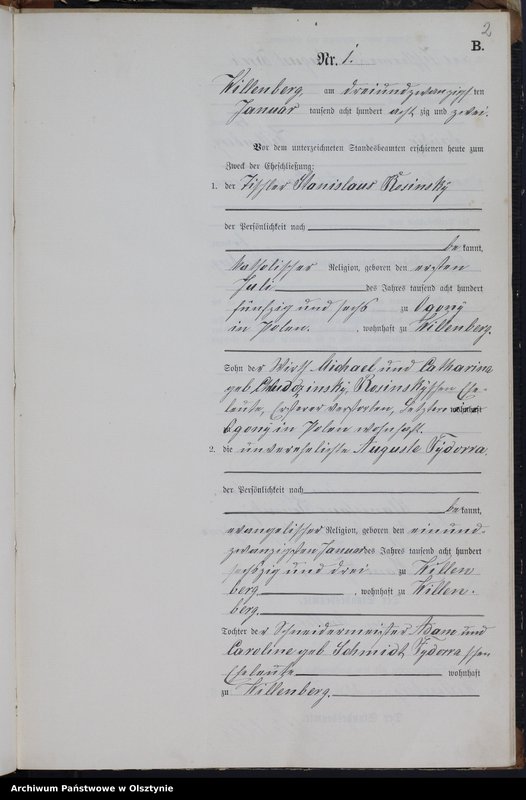 2
B.
Nr. 1.
Willenberg am dreiundzwanzigsten
Januar tausend acht hundert acht zig und zwei.
Vor dem unterzeichneten Standesbeamten erschienen heute zum
Zweck der Eheschließung:
1. der Tischler Stanislaus Rosinsky
der Persönlichkeit nach
be kannt,
katholischer Religion, geboren den ersten
Juli des Jahres tausend acht hundert
fünfzig und sechs zu Ogony
in Polen. , wohnhaft zu Willenberg.
Sohn der Wirth Michael und Catharina
geb. Rosinsky'schen Ehe-
leute, Ersterer verstorben, Letztere wohnhaft
Ogony in Polen wohnhaft.
2. die unverehelichte Auguste Fydorra
der Persönlichkeit nach
be kannt,
evangelischer Religion, geboren den einund-
zwanzigsten Januar des Jahres tausend acht hundert
sechszig und drei zu Willen
berg. , wohnhaft zu Willen-
berg.
Tochter der Schneidermeister Adam und
Caroline geb. Schmidt Fydorra'schen
Eheleute wohnhaft
zu Willenberg.
Archiwum Państwowe w Olsztynie